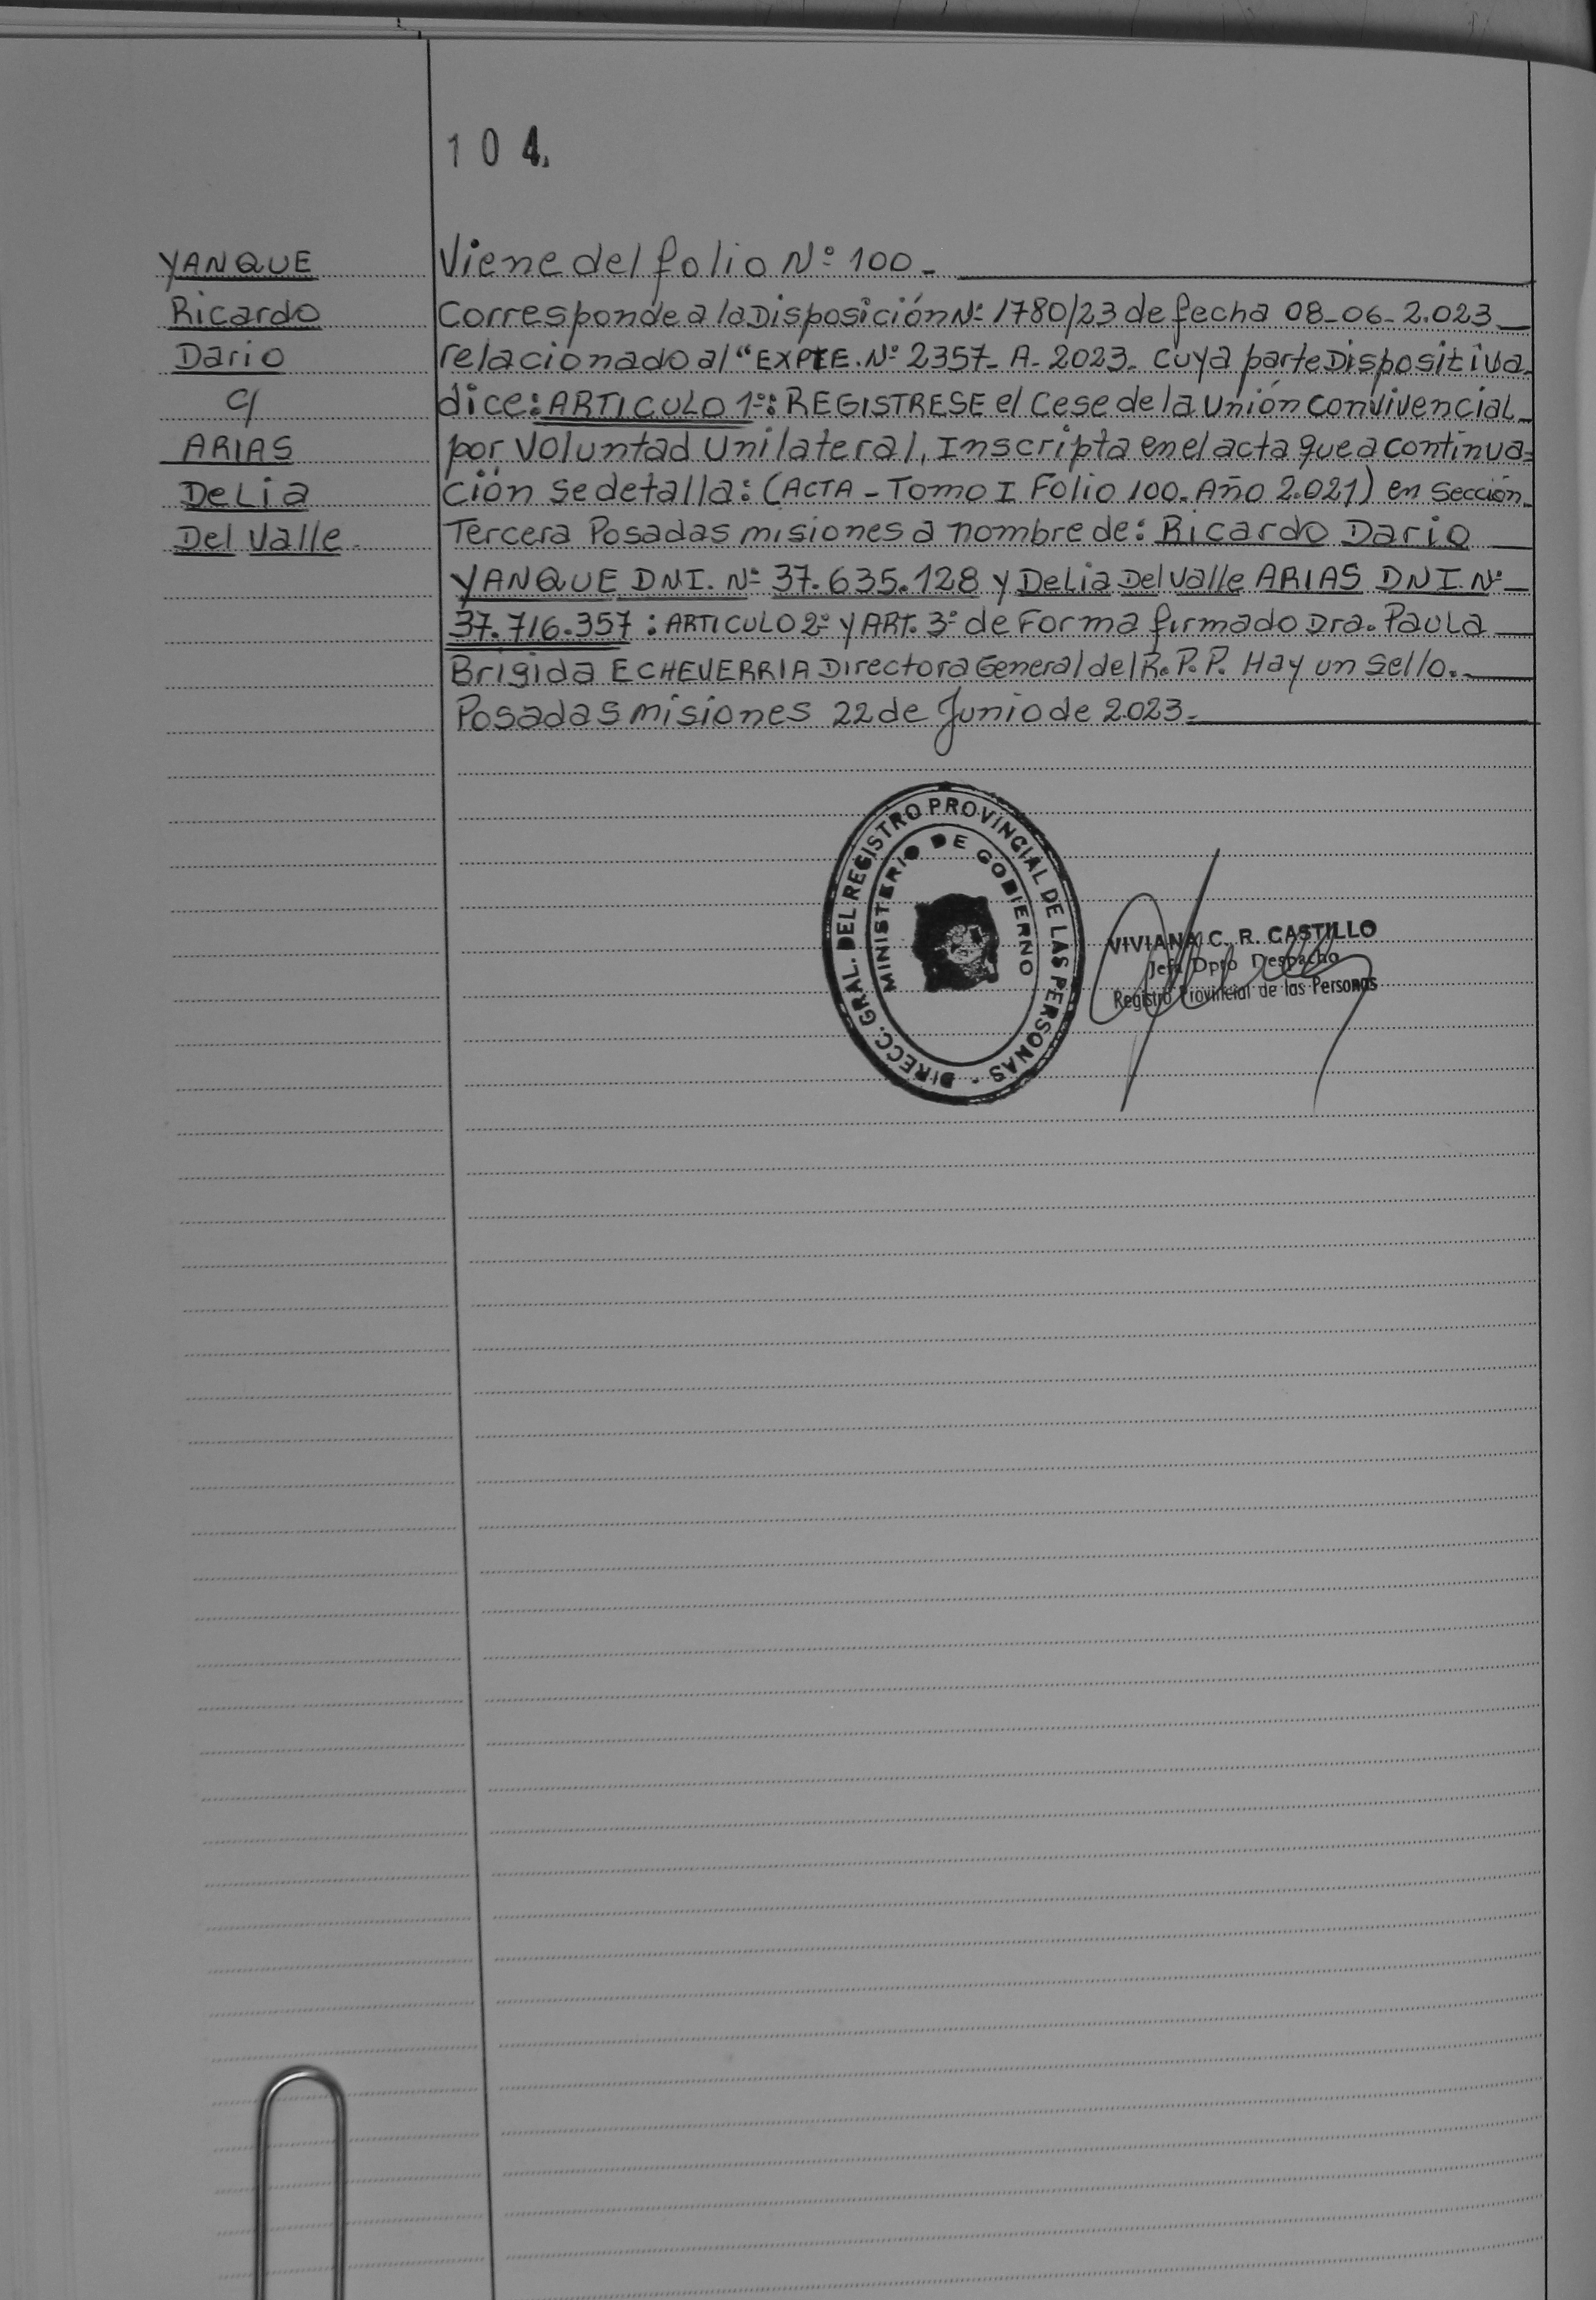 104.
YANQUE
Ricardo
Dario
c/
ARIAS
Delia
Del Valle.
Viene del folio Nº 100.-
Corresponde a la Disposición Nº 1780/23 de fecha 08-06-2.023
relacionado al "EXPTE. Nº 2357- A- 2023- cuya parte Dispositiva-
dice: ARTICULO 1º: REGISTRESE el Cese de la Unión convivencial-
por Voluntad Unilateral, Inscripta en el acta que a continua-
ción se detalla: (ACTA - Tomo I Folio 100- Año 2.021) en Sección
Tercera Posadas misiones a nombre de: Ricardo Dario
YANQUE DNI. Nº 37.635.128 y Delia Del Valle ARIAS DNI. Nº
37.716.357: ARTICULO 2º y ART. 3º de Forma firmado Dra. Paula
Brigida ECHEVERRIA Directora General del R.P.P. Hay un Sello.-
Posadas misiones 22 de Junio de 2023.-
DIRECC. GRAL. DEL REGISTRO PROVINCIAL DE LAS PERSONAS -
MINISTERIO DE GOBIERNO
VIVIANA C. R. CASTILLO
Jefa Dpto Despacho
Registro Provincial de las Personas